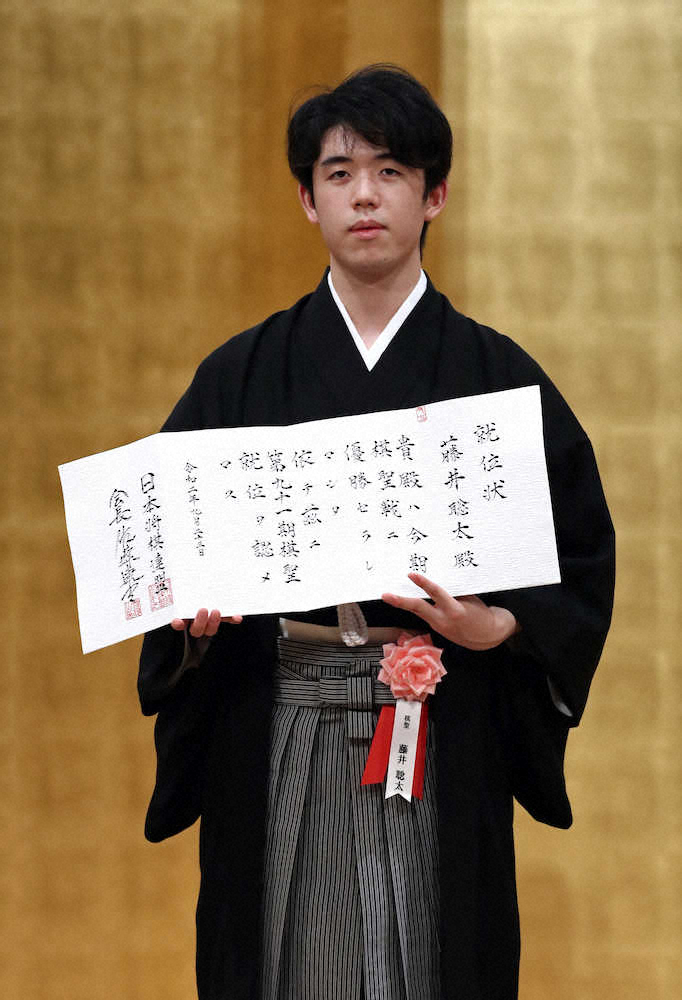 就位状
藤井聡太殿
貴殿ハ今期
棋聖戦ニ
優勝セラレ
マシタ
依テ茲ニ
第九十一期棋聖
就位ヲ認メ
マス
令和二年九月
日本将棋連盟
会長 佐藤康光
棋聖 藤井 聡太